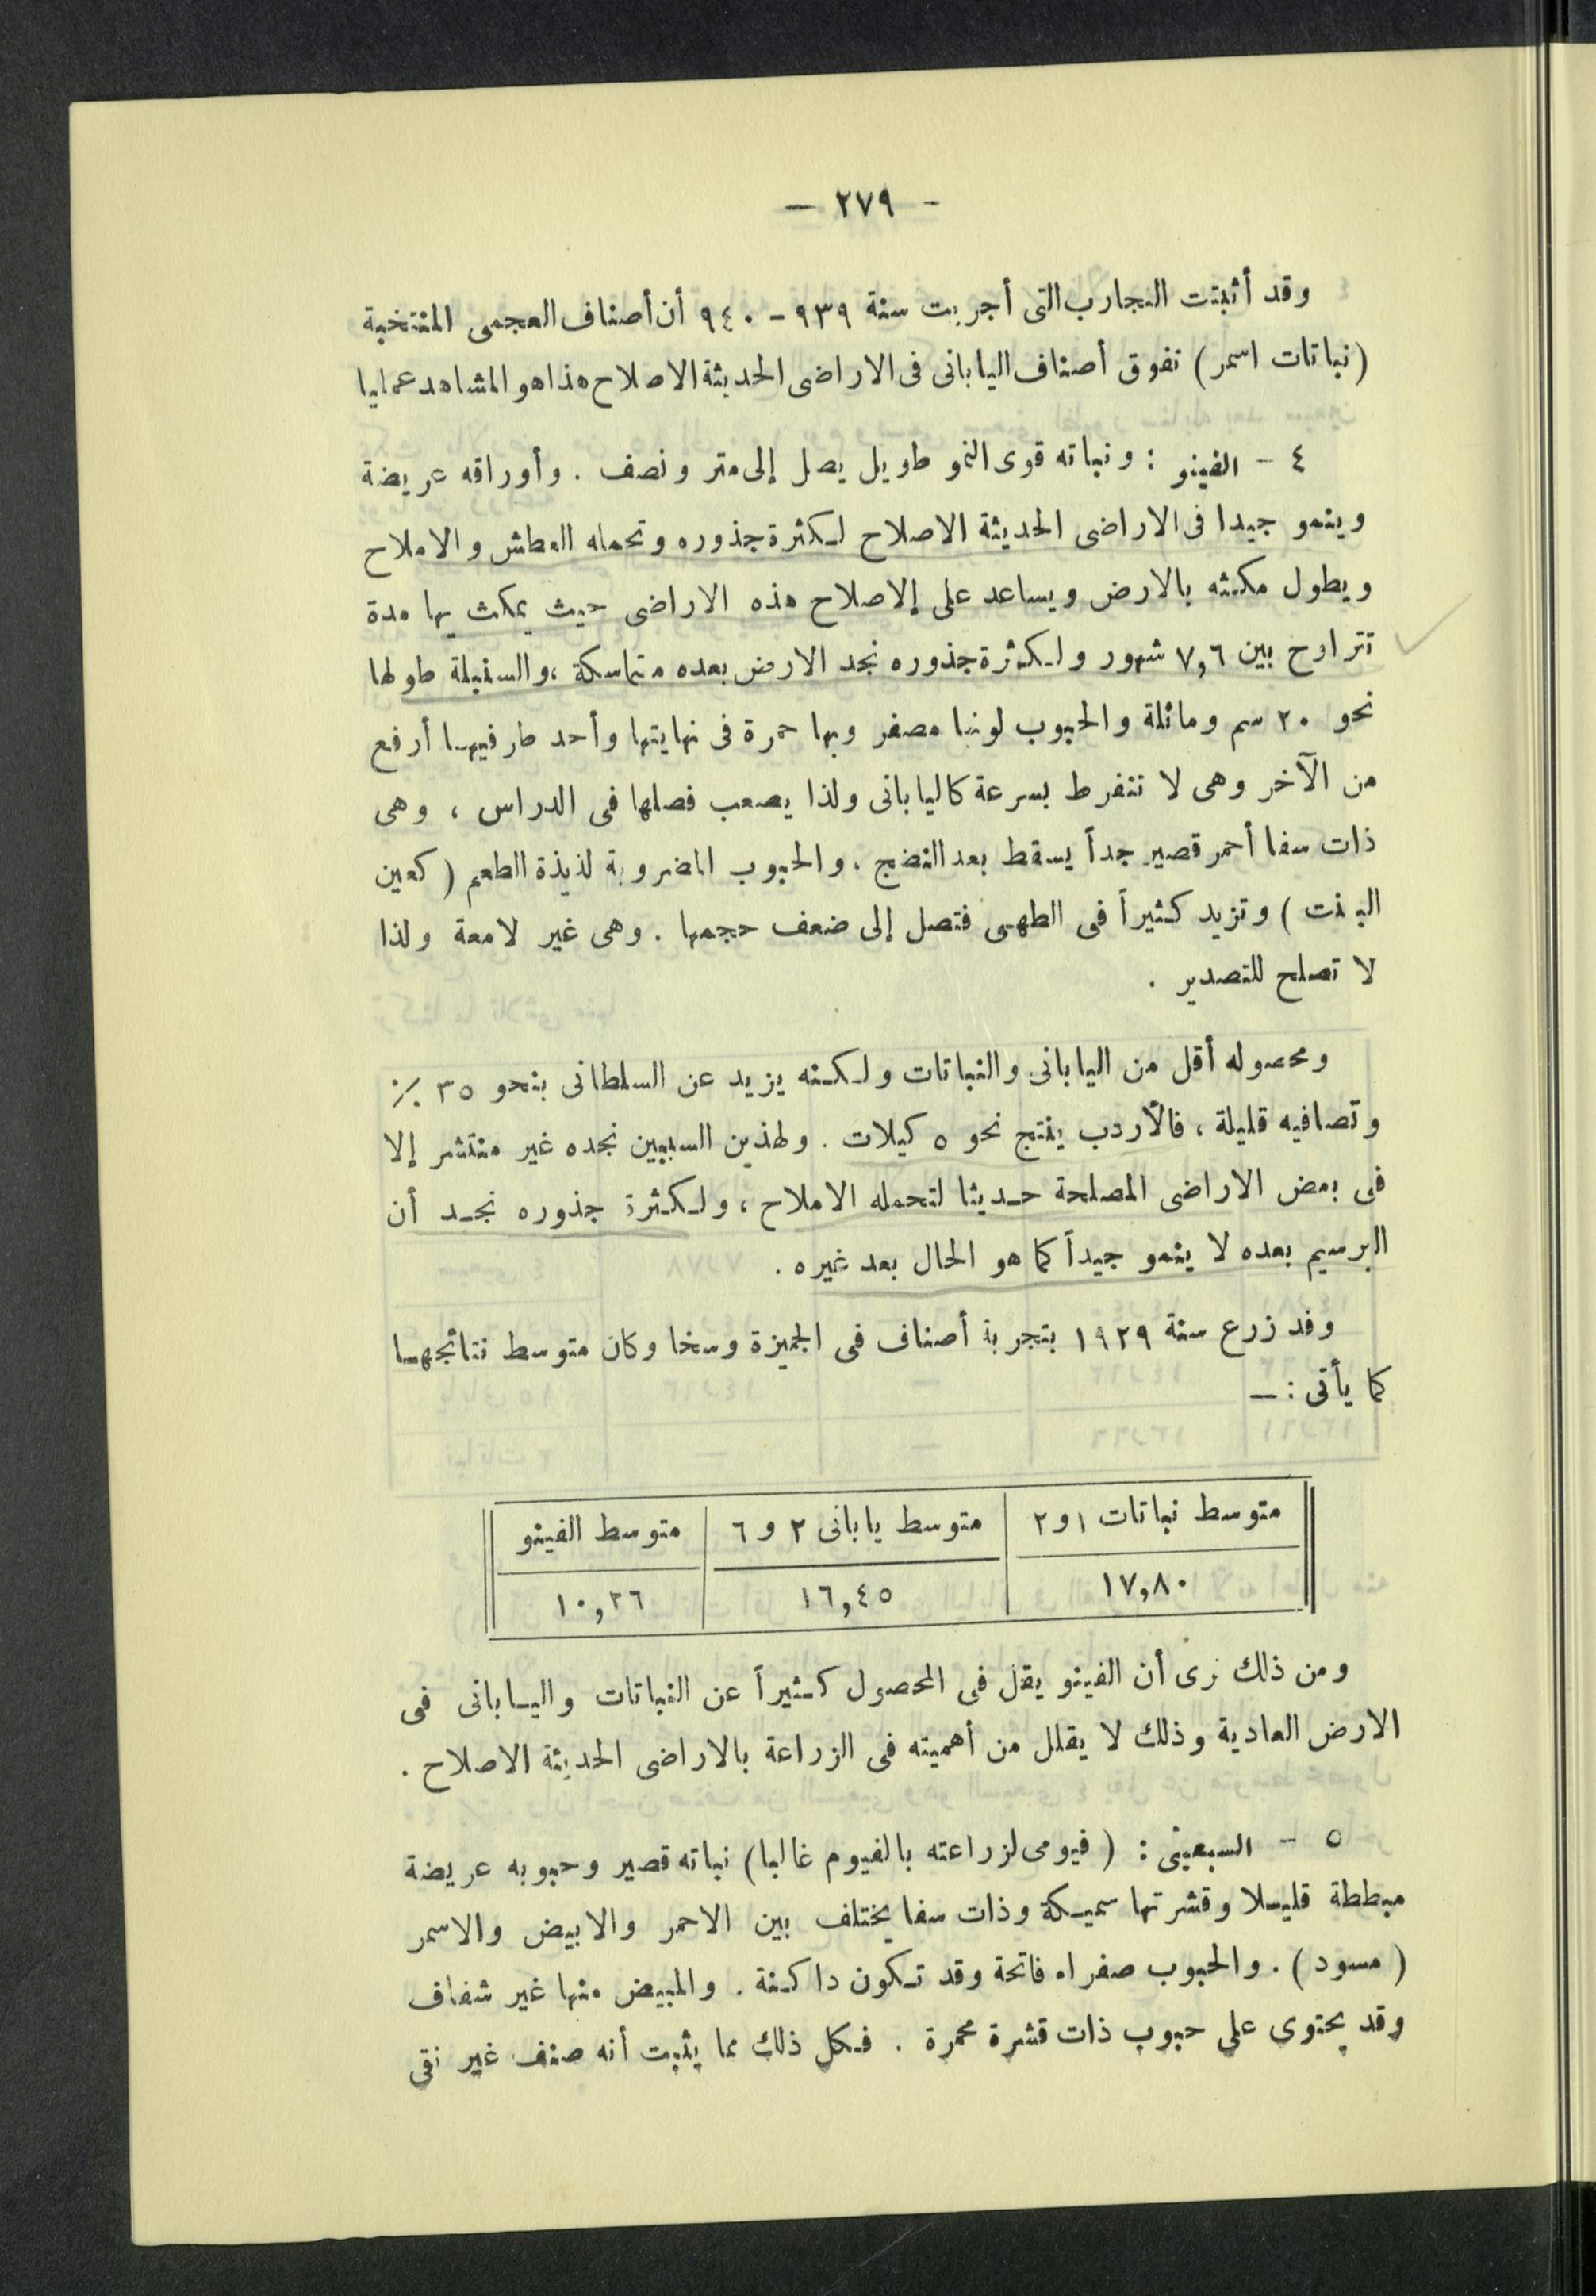 - ٢٧٩ -
وقد أثبتت التجارب التى أجريت سنة ٩٣٩ - ٩٤٠ أن أصناف العجمى المنتخبة
(نباتات اسمر) تفوق أصناف اليابانى فى الاراضى الحديثة الاصلاح هذا هو المشاهد عمليا
٤ - الفينو : ونباته قوى النمو طويل يصل إلى متر ونصف . وأوراقه عريضة
وينمو جيدا فى الاراضى الحديثة الاصلاح لكثرة جذوره وتحمله العطش والاملاح
ويطول مكثه بالارض ويساعد على إلاصلاح هذه الاراضى حيث يمكث بها مدة
تتراوح بين ٧,٦ شهور ولكثرة جذوره نجد الارض بعده متماسكة ، والسنبلة طولها
نحو ٢٠ سم ومائلة والحبوب لونها مصفر وبها حمرة فى نهايتها وأحد طرفيها أرفع
من الآخر وهى لا تنفرط بسرعة كاليابانى ولذا يصعب فصلها فى الدراس ، وهى
ذات سفا أحمر قصير جداً يسقط بعد النضج . والحبوب المضروبة لذيذة الطعم ( كعين
البنت ) وتزيد كثيراً فى الطهى فتصل إلى ضعف حجمها . وهى غير لامعة ولذا
لا تصلح للتصدير .
ومحصوله أقل من اليابانى والنباتات ولكنه يزيد عن السلطانى بنحو ٣٥ ٪
وتصافيه قليلة ، فالأردب ينتج نحو ٥ كيلات . ولهذين السببين نجده غير منتشر إلا
فى بعض الاراضى المصلحة حديثا لتحمله الاملاح ، ولكثرة جذوره نجد أن
البرسيم بعده لا ينمو جيداً كما هو الحال بعد غيره .
وقد زرع سنة ١٩٢٩ بتجربة أصناف فى الجيزة وسخا وكان متوسط نتائجها
كما يأتى : —
متوسط نباتات ١ و ٢ متوسط يابانى ٢ و ٦ متوسط الفينو
١٧,٨٠ ١٦,٤٥ ١٠,٢٦
ومن ذلك نرى أن الفينو يقل فى المحصول كثيراً عن النباتات واليابانى فى
الارض العادية وذلك لا يقلل من أهميته فى الزراعة بالاراضى الحديثة الاصلاح .
٥ - السبعينى : ( فيومى لزراعته بالفيوم غالبا ) نباته قصير وحبوبه عريضة
مبططة قليلا وقشرتها سميكة وذات سفا يختلف بين الاحمر والابيض والاسمر
( مسود ) . والحبوب صفراء فاتحة وقد تكون داكنة . والمبيض منها غير شفاف
وقد يحتوى على حبوب ذات قشرة محمرة . فكل ذلك مما يثبت أنه صنف غير نقى